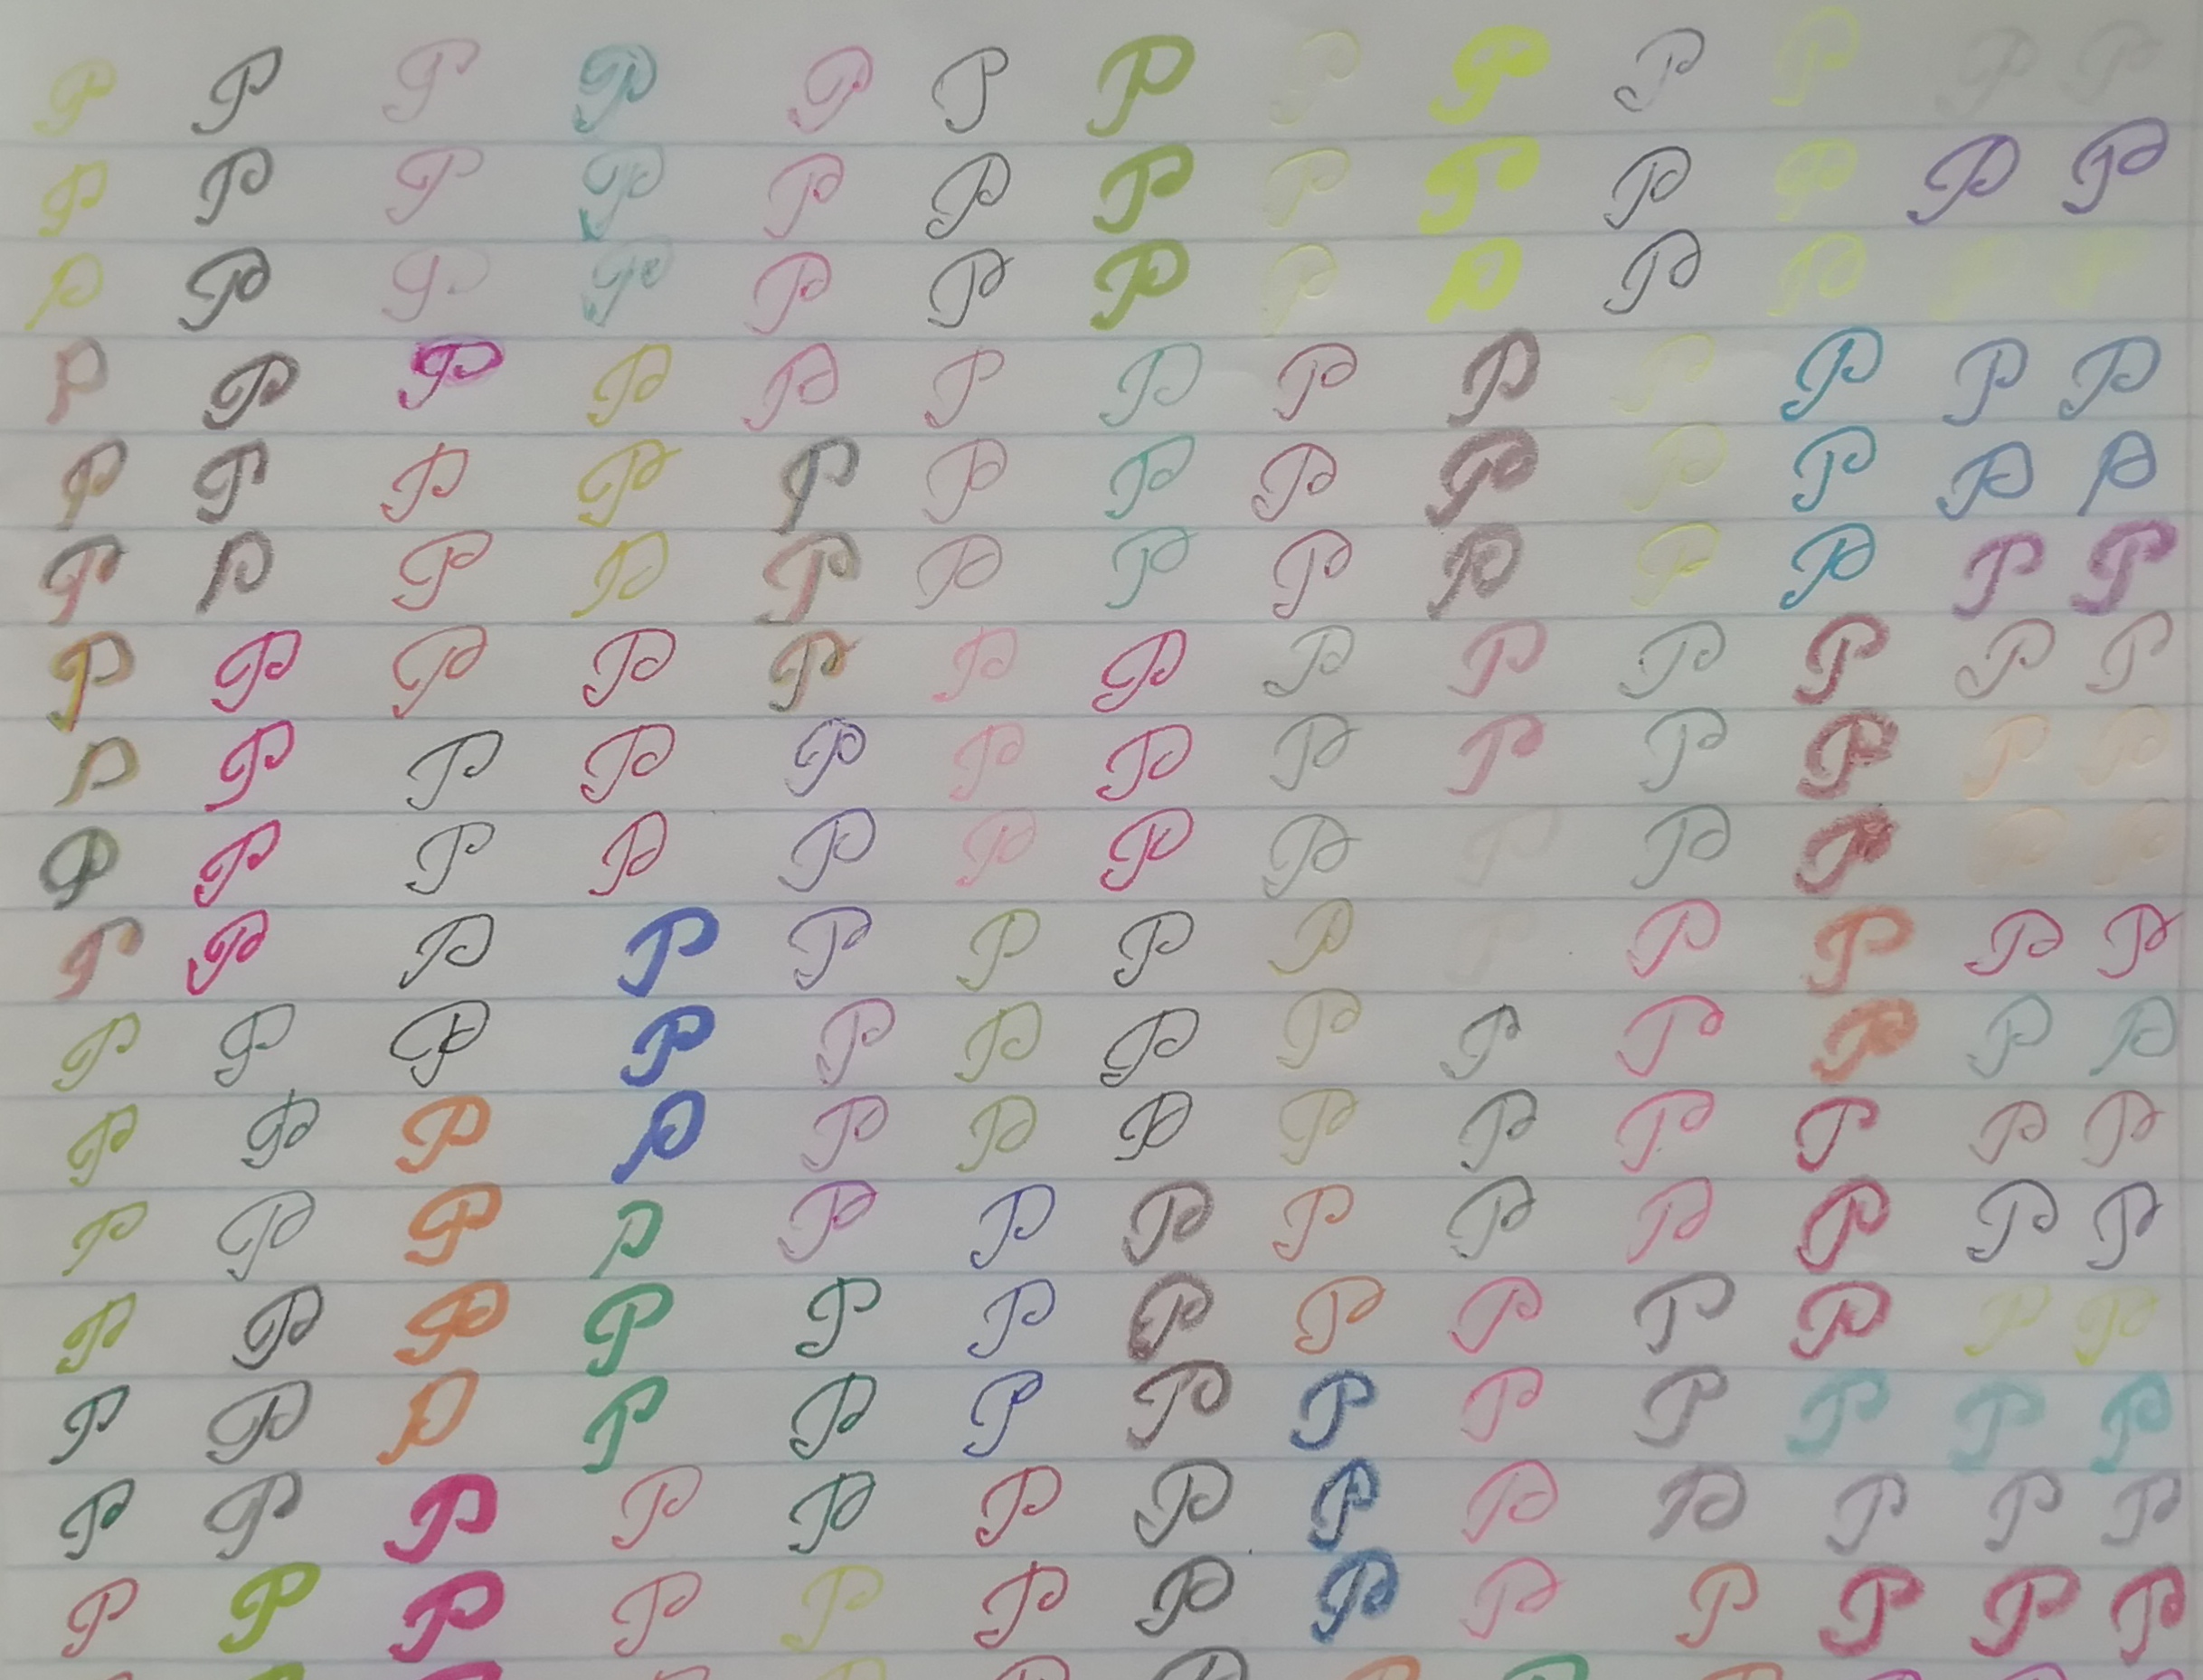 P P P P P P P P P P P P P
P P P P P P P P P P P P P
P P P P P P P P P P P P P
P P P P P P P P P P P P P
P P P P P P P P P P P P P
P P P P P P P P P P P P P
P P P P P P P P P P P P P
P P P P P P P P P P P P P
P P P P P P P P P P P P P
P P P P P P P P P P P P P
P P P P P P P P P P P P P
P P P P P P P P P P P P P
P P P P P P P P P P P P P
P P P P P P P P P P P P P
P P P P P P P P P P P P P
P P P P P P P P P P P P P
P P P P P P P P P P P P P